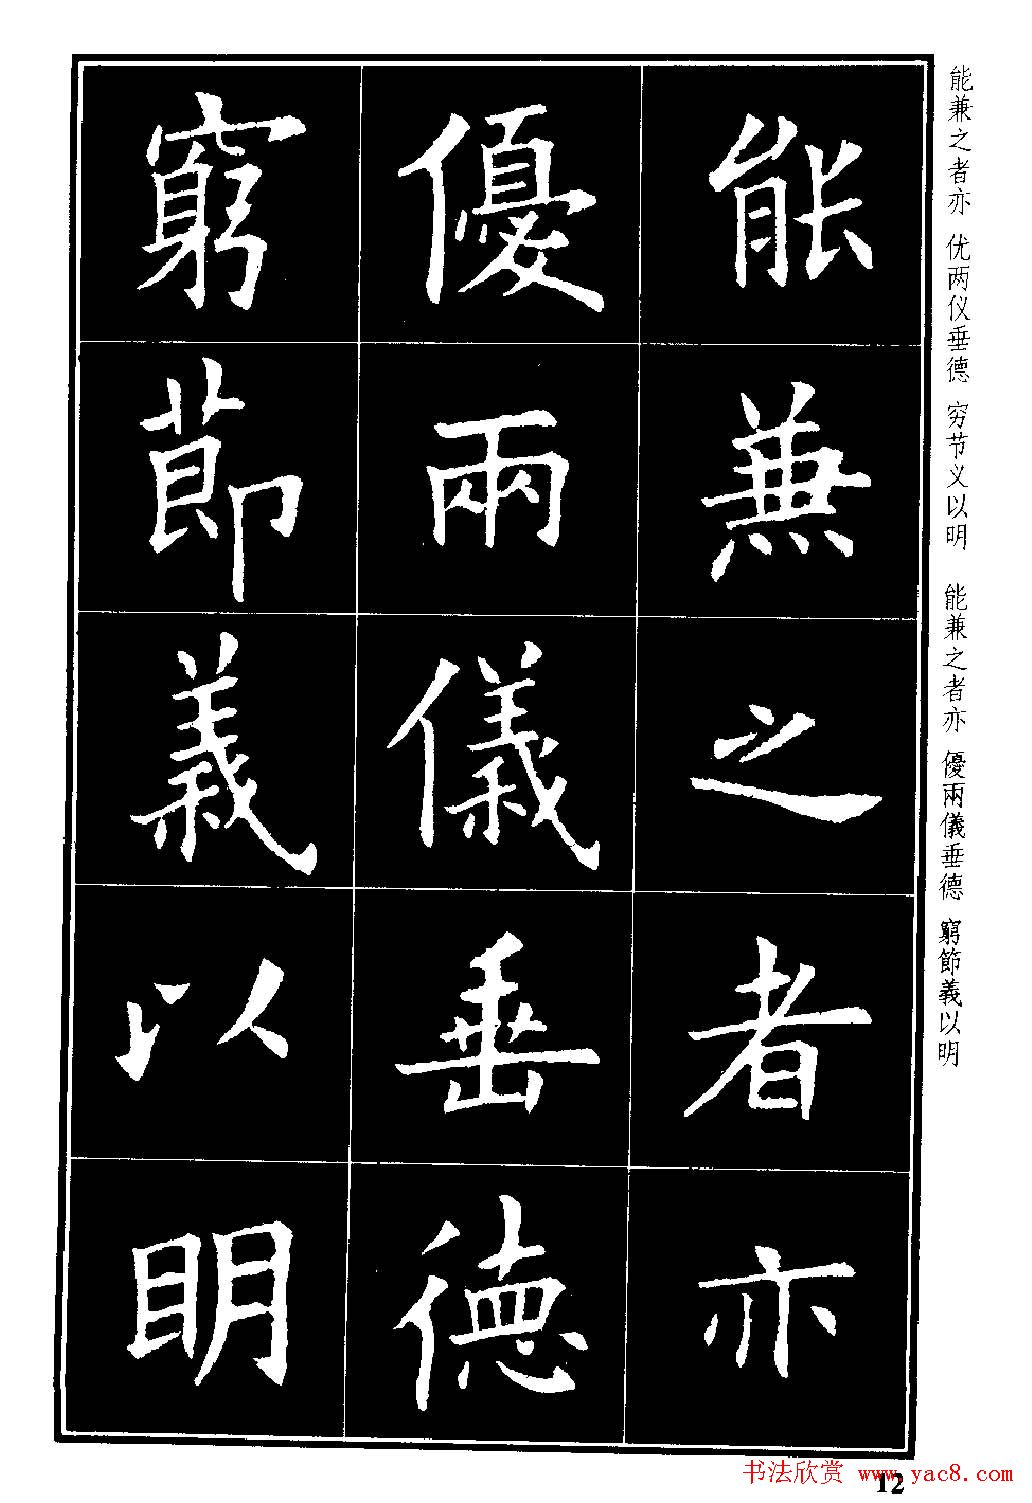 能兼之者亦
優兩儀垂德
窮節義以明
能兼之者亦 优两仪垂德 穷节义以明 能兼之者亦 優兩儀垂德 窮節義以明
12
书法欣赏 www.yac8.com